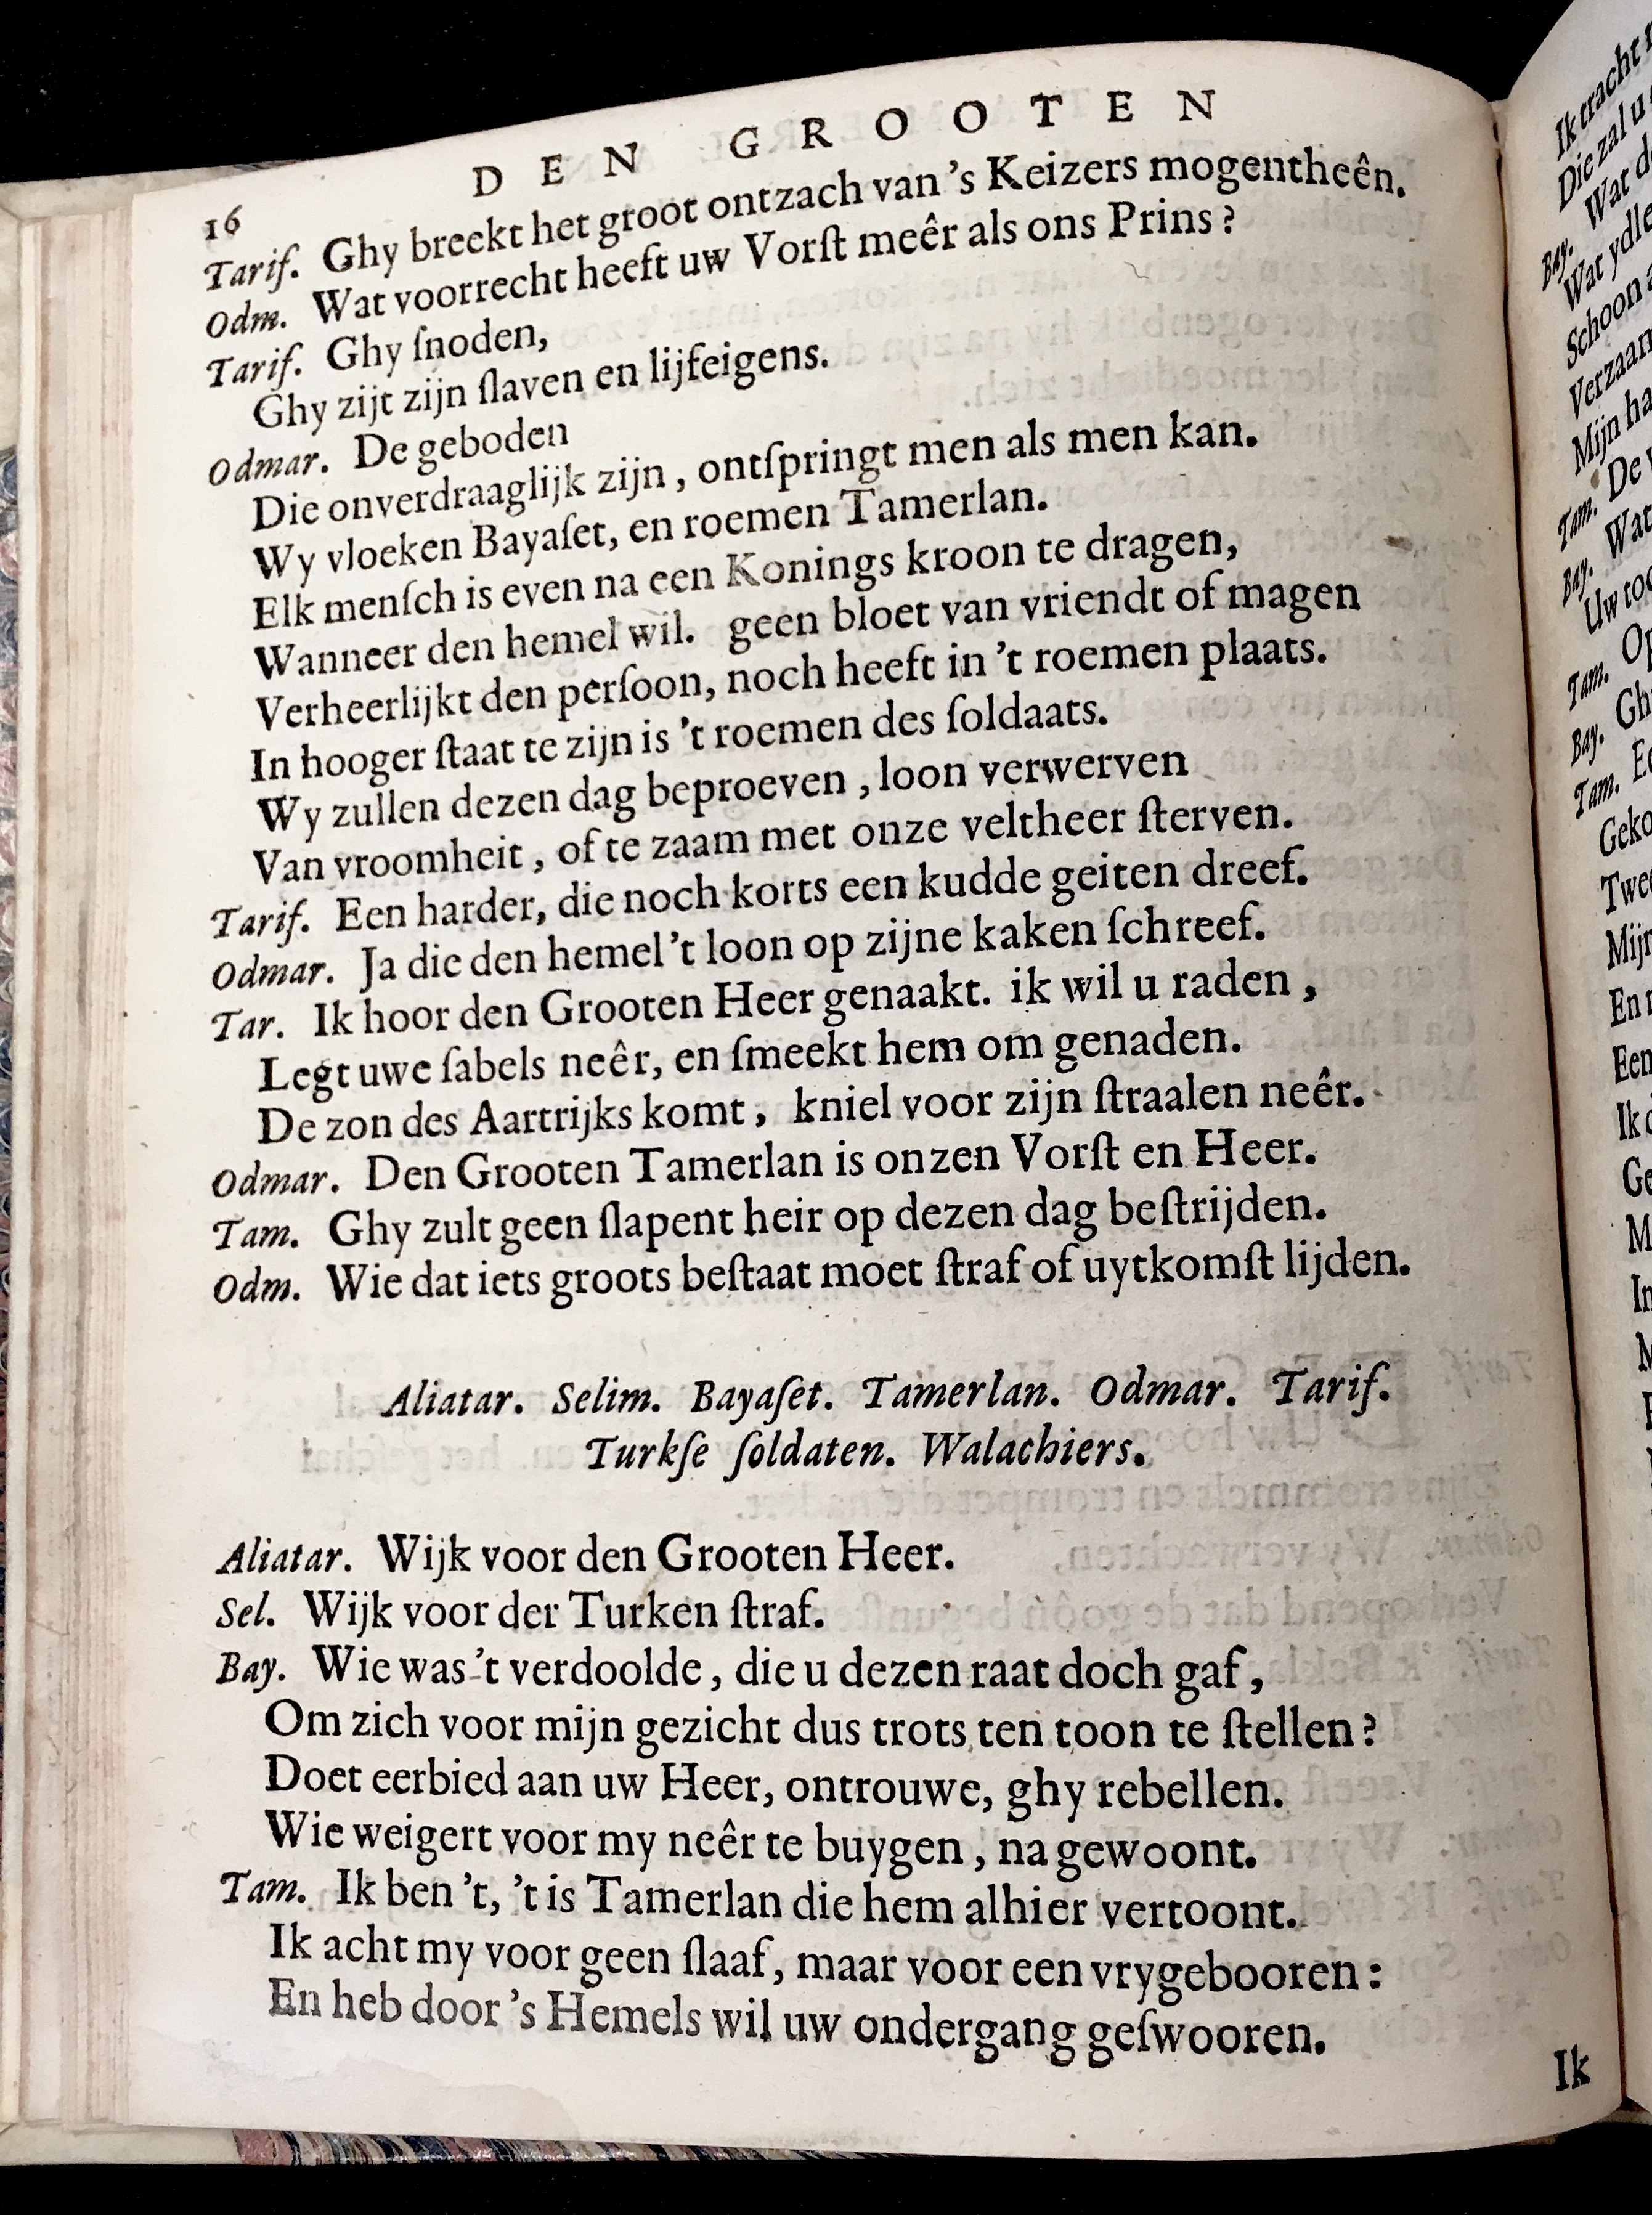 DEN GROOTEN
16
Tarif. Ghy breekt het groot ontzach van 's Keizers mogentheên.
Odm. Wat voorrecht heeft uw Vorſt meêr als ons Prins?
Tarif. Ghy ſnoden,
Ghy zijt zijn ſlaven en lijfeigens.
Odmar. De geboden
Die onverdraaglijk zijn, ontſpringt men als men kan.
Wy vloeken Bayaſet, en roemen Tamerlan.
Elk menſch is even na een Konings kroon te dragen,
Wanneer den hemel wil. geen bloet van vriendt of magen
Verheerlijkt den perſoon, noch heeft in 't roemen plaats.
In hooger ſtaat te zijn is 't roemen des ſoldaats.
Wy zullen dezen dag beproeven, loon verwerven
Van vroomheit, of te zaam met onze veltheer ſterven.
Tarif. Een harder, die noch korts een kudde geiten dreef.
Odmar. Ja die den hemel 't loon op zijne kaken ſchreef.
Tar. Ik hoor den Grooten Heer genaakt. ik wil u raden,
Legt uwe ſabels neêr, en ſmeekt hem om genaden.
De zon des Aartrijks komt, kniel voor zijn ſtraalen neêr.
Odmar. Den Grooten Tamerlan is onzen Vorſt en Heer.
Tam. Ghy zult geen ſlapent heir op dezen dag beſtrijden.
Odm. Wie dat iets groots beſtaat moet ſtraf of uytkomſt lijden.
Aliatar. Selim. Bayaſet. Tamerlan. Odmar. Tarif.
Turkſe ſoldaten. Walachiers.
Aliatar. Wijk voor den Grooten Heer.
Sel. Wijk voor der Turken ſtraf.
Bay. Wie was 't verdoolde, die u dezen raat doch gaf,
Om zich voor mijn gezicht dus trots ten toon te ſtellen?
Doet eerbied aan uw Heer, ontrouwe, ghy rebellen.
Wie weigert voor my neêr te buygen, na gewoont.
Tam. Ik ben 't, 't is Tamerlan die hem alhier vertoont.
Ik acht my voor geen ſlaaf, maar voor een vrygebooren:
En heb door 's Hemels wil uw ondergang geſwooren.
Ik
Ik tracht
Die zal u
Wat d
Bay. Wat ydle
Schoon a
Verzaam
Mijn ha
Tam. De
Bay. Wat
Uw to
Tam. Op
Bay. Gh
Tam. E
Geko
Twee
Mijn
En
Een
Ik
Ge
M
In
M